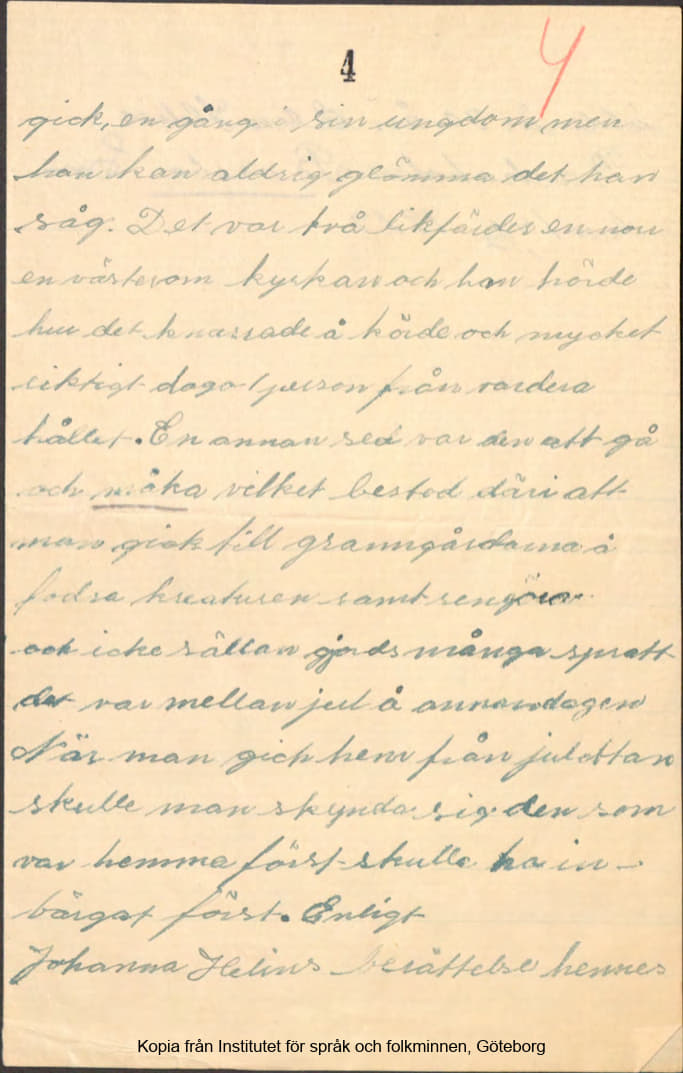 4
4
gick, en gång i sin ungdom men
han kan aldrig glömma det han
såg. Det var två likfärder en norr
en väster om kyrkan och han hörde
hur det knassade å körde och mycket
riktigt dogo 1 person från vardera
hållet. En annan sed var den att gå
och måka vilket bestod däri att
man gick till granngårdarna å
fodra kreaturen samt rengöra
och icke sällan gjords många spratt
det var mellan jul å annandagen
När man gick hem från julottan
skulle man skynda sig den som
var hemma först skulle ha in-
bärgat först. Enligt
Johanna Helins berättelse hennes
Kopia från Institutet för språk och folkminnen, Göteborg